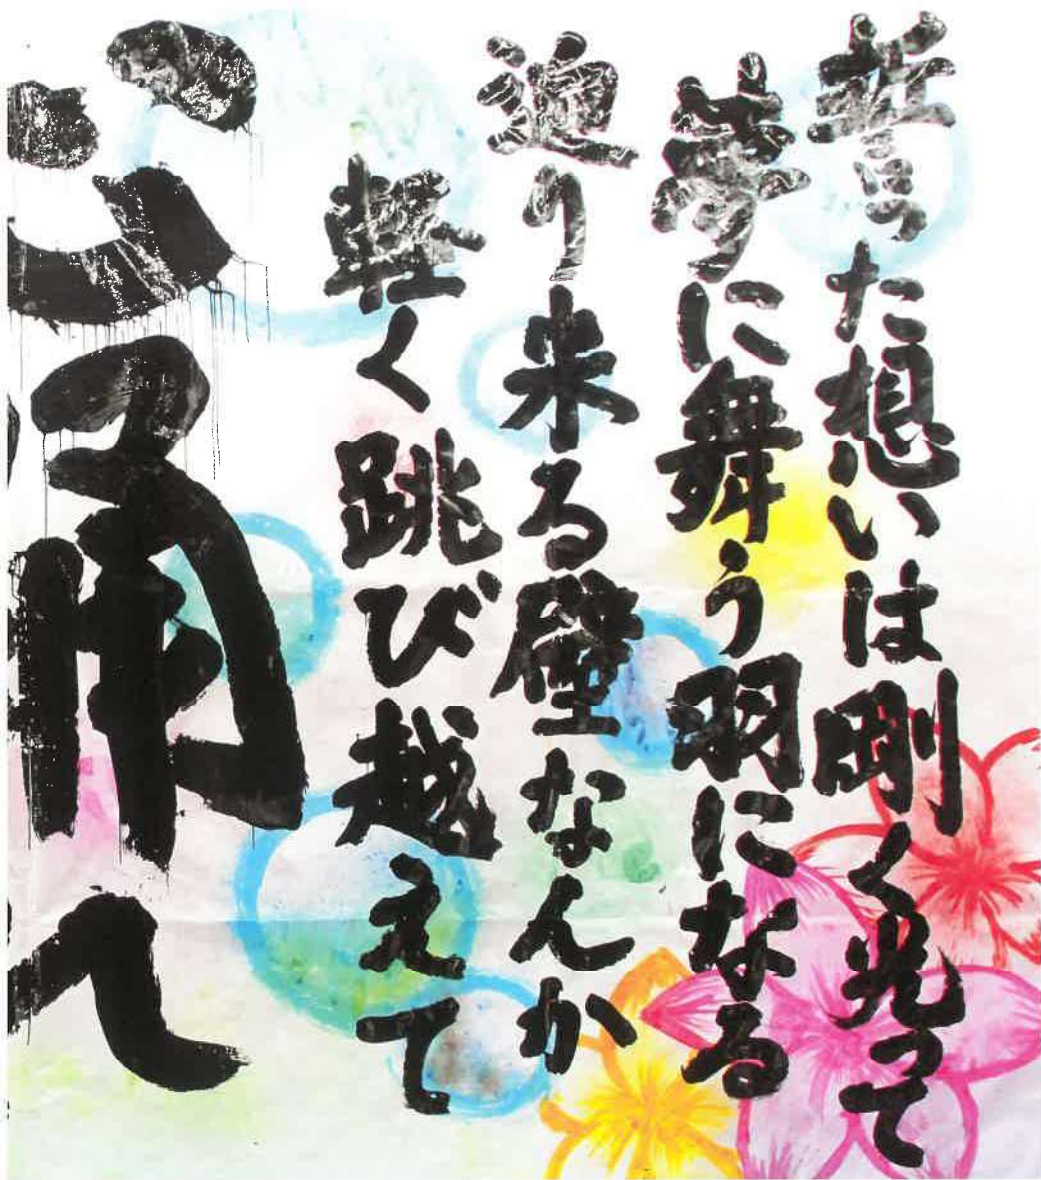 誓った想いは剛く光って
夢に舞う羽になる
迫り来る壁なんか
軽く跳び越えて
心